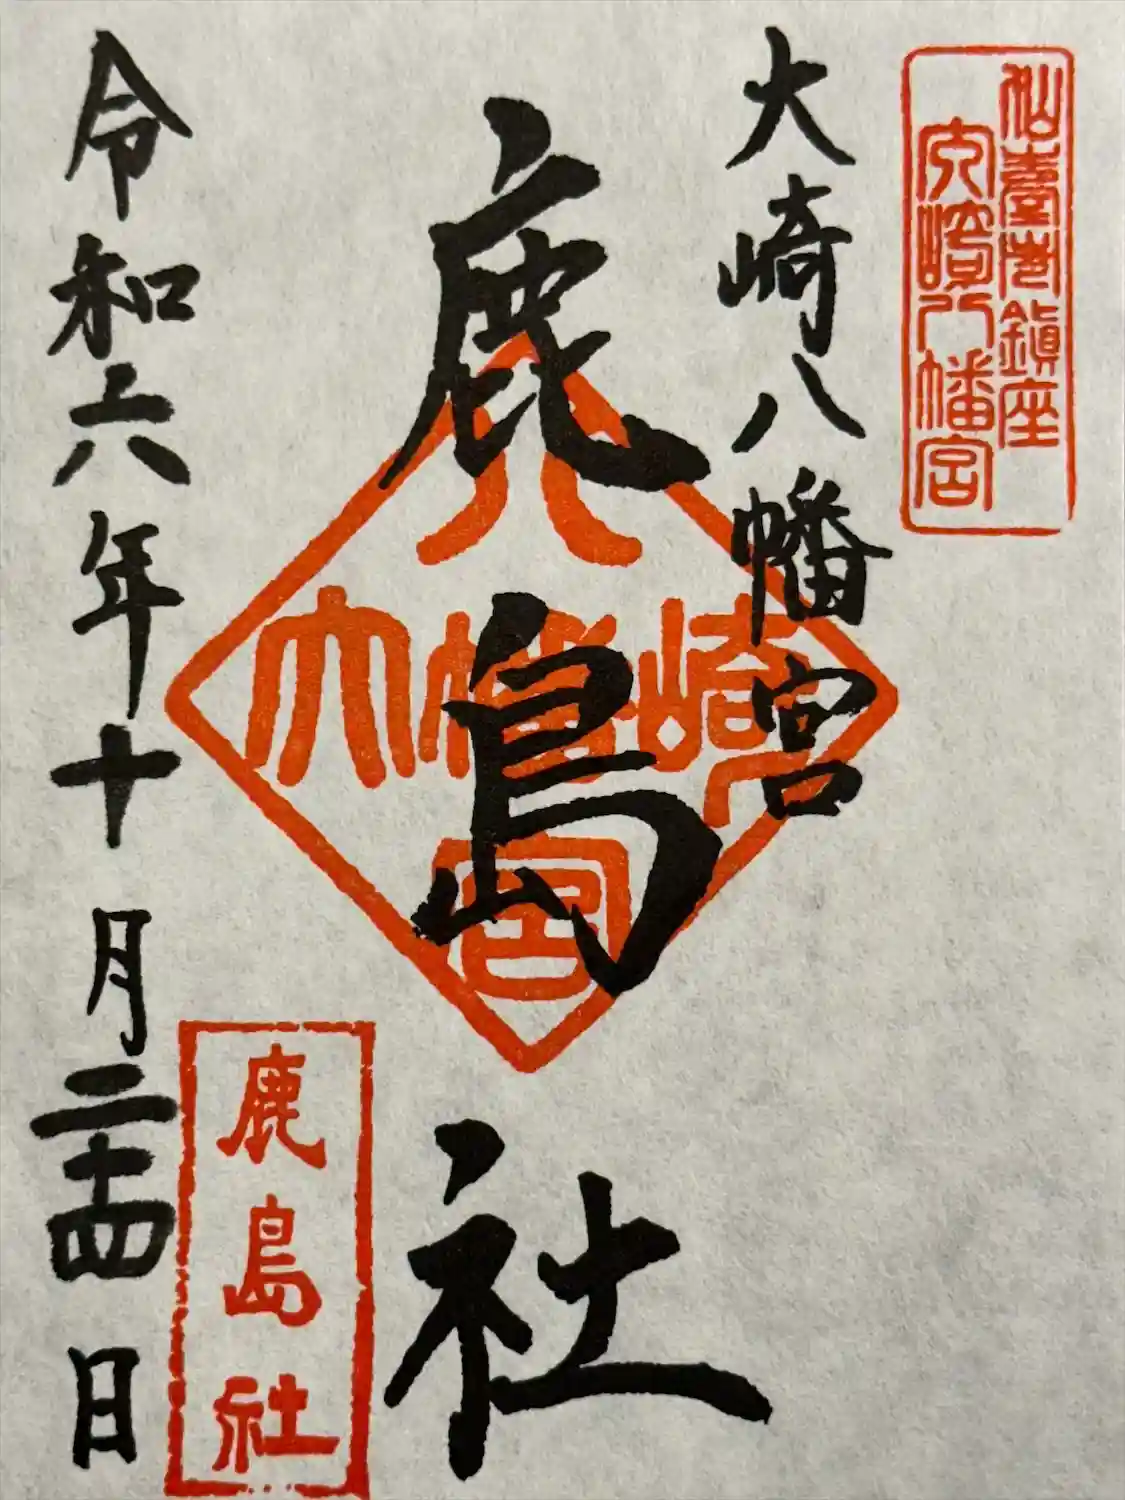 仙臺市鎮座
大崎八幡宮
大崎八幡宮
鹿島社
大崎八幡宮
鹿島社
令和六年十月二十四日